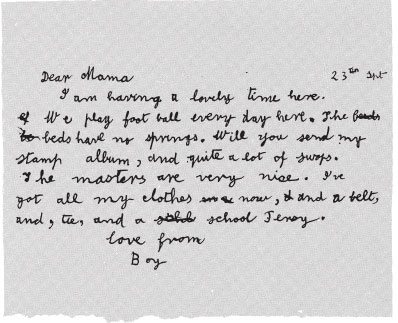 Dear Mama 23rd Spt
I am having a lovely time here.
We play foot ball every day here. The beds
beds have no springs. Will you send my
stamp album, and quite a lot of swops.
The masters are very nice. I've
got all my clothes now, & and a belt,
and, tie, and a school Jersy.
love from
Boy